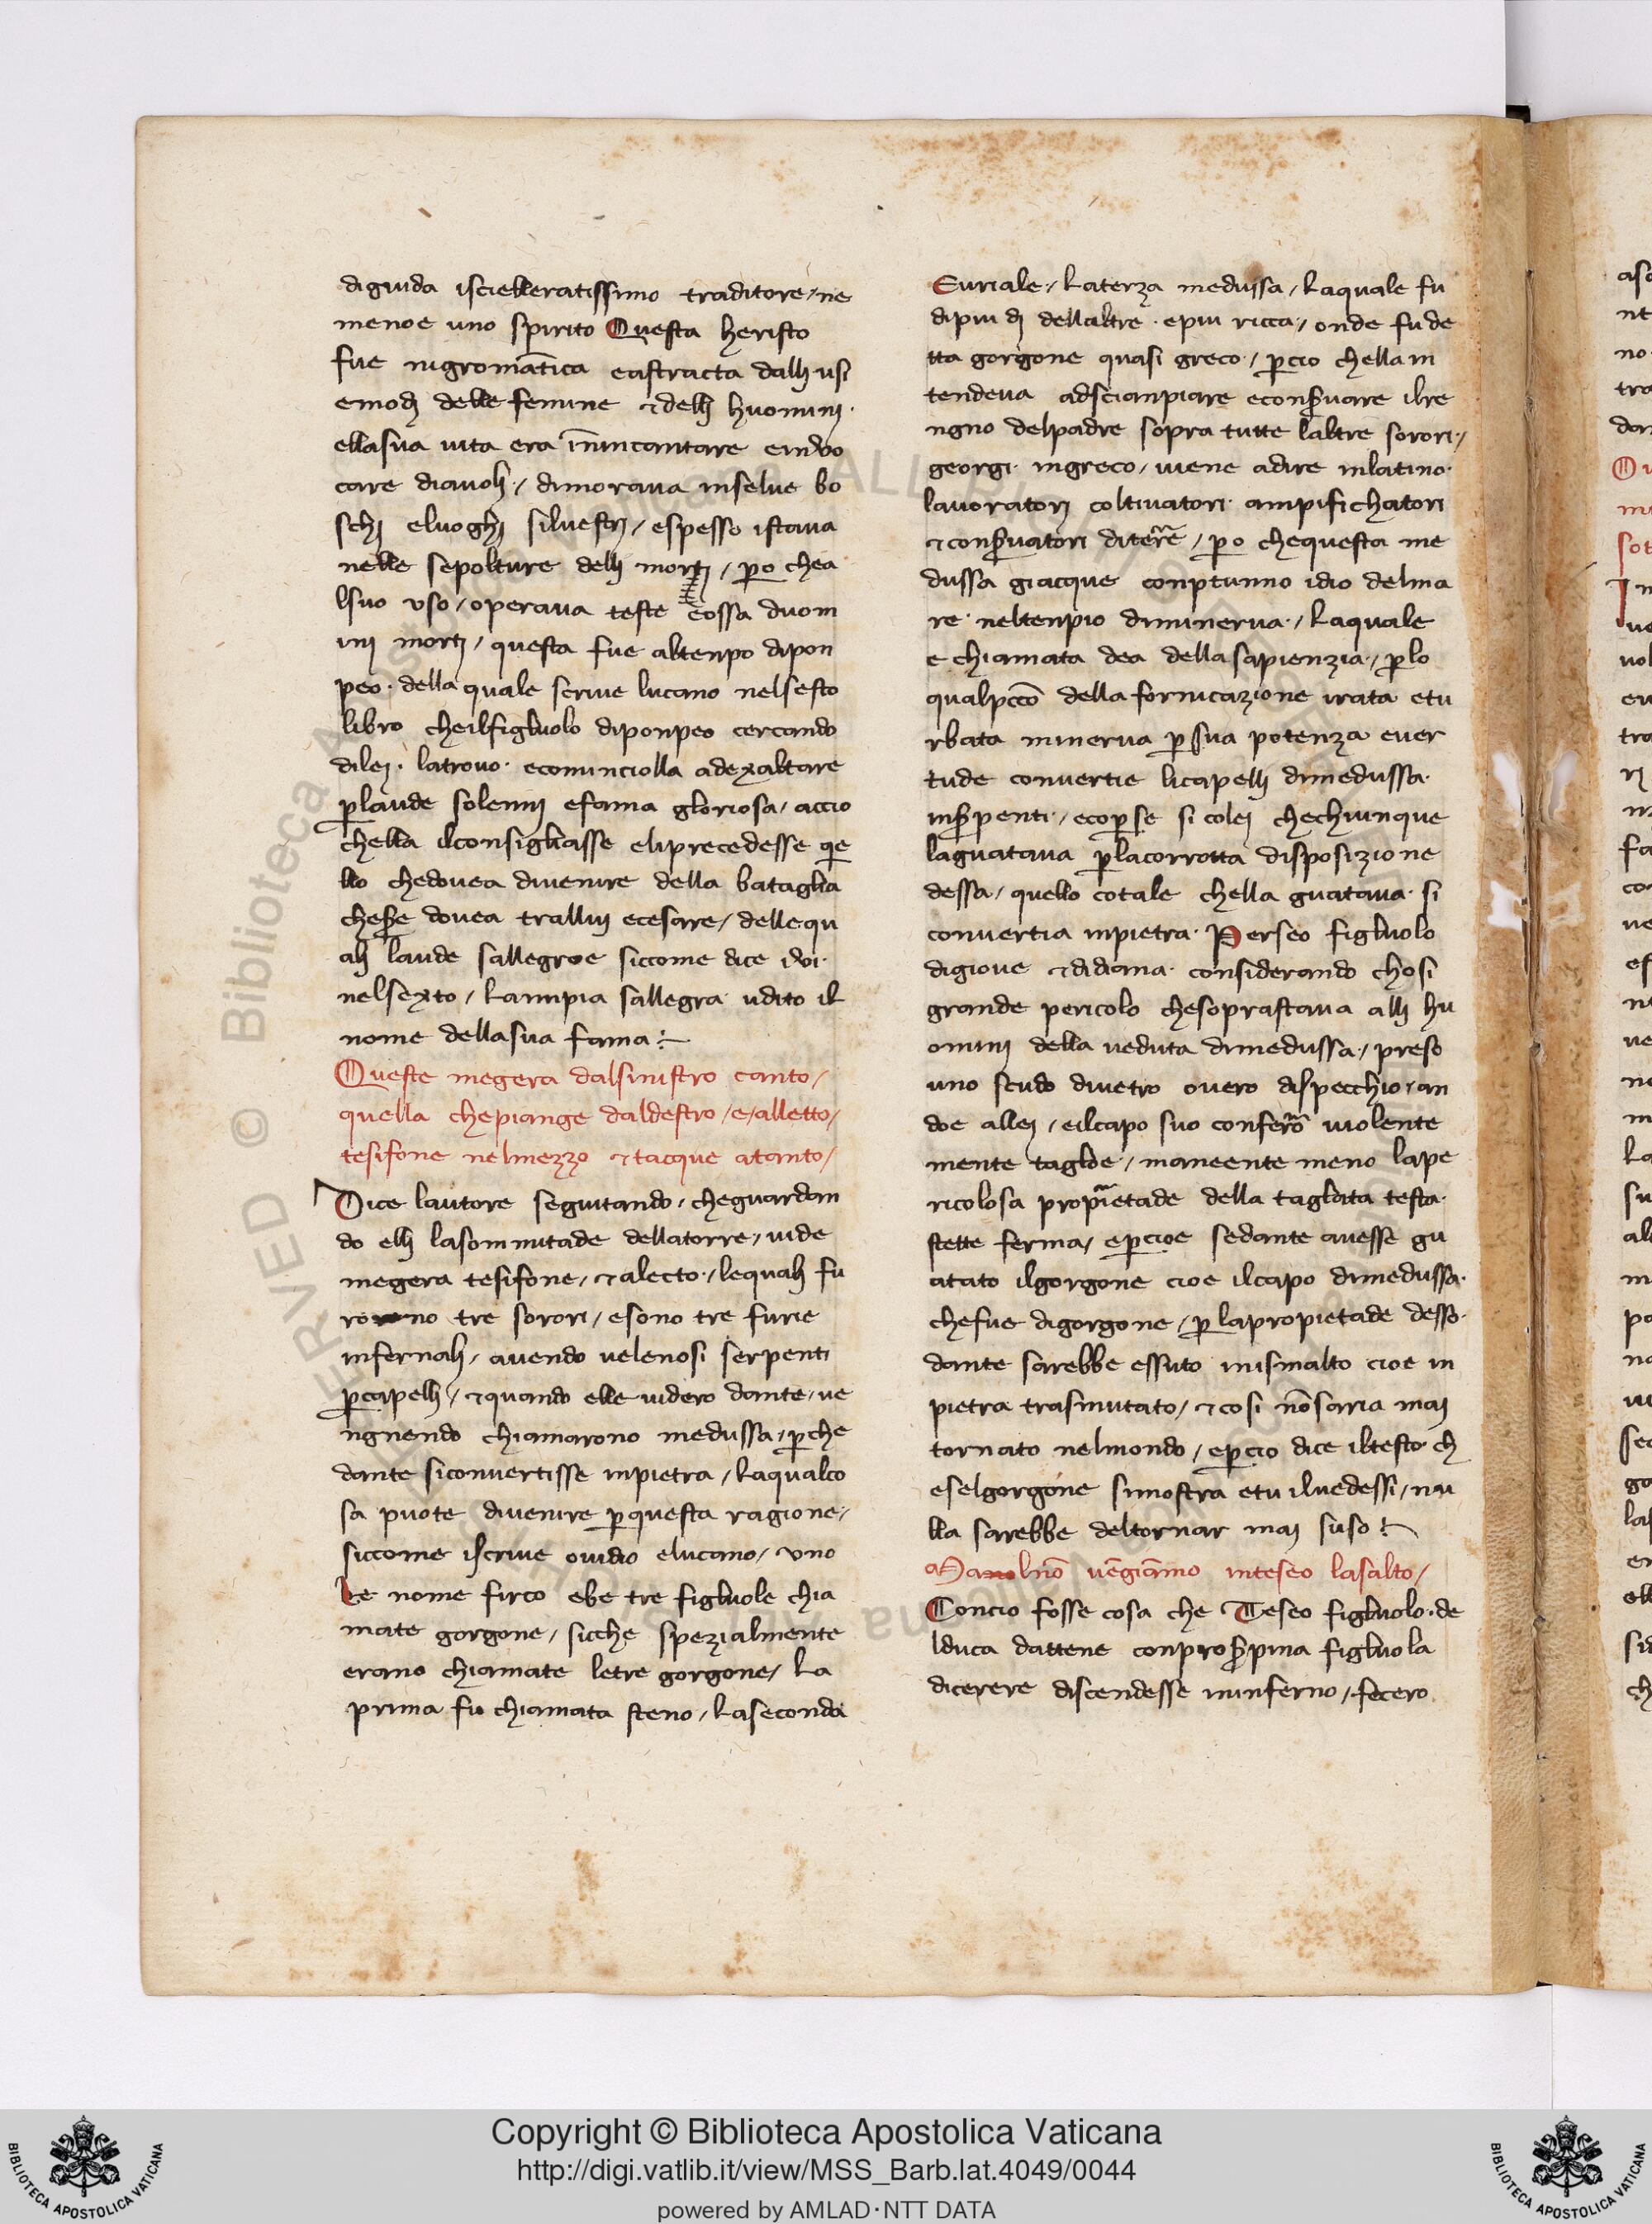 diguida iscielleratissimo traditore / ne
menoe uno spirito Questa heristo
fue nigromãtica eastracta dallj usi
emodj delle femine ⁊ dellj huominj ·
ellasua uita era ĩnincantare
care diauolj · / dimoraua inselue bo
schj eluoghj siluestrj / espesso istaua
nelle sepolture dellj mortj / p̱o chea
lsuo uso / operaua teste eossa duom
inj mortj / questa fue altenpo dipon
peo · della quale scriue lucano nelsesto
libro cheilfigluolo diponpeo cercando
dilej · latrouo · ecominciolla adexaltare
p̱laude solennj efama gloriosa / accio
chella ilconsigliasse eliprecedesse que
llo chedouea diuenire della bataglia
douea trallui ecesare / delle qu
alj laude sallegroe siccome dice
nelsexto / Lannpia sallegra udito il
nome dellasua fama :~
Queste megera dalsinistro canto /
quella chepiange daldestro / e / alletto /
tesifone nelmezzo ⁊ tacque atanto /
Dice lautore seguitando / cheguardan
do ellj lasommitade dellatorre / uide
megera tesifone / ⁊ alecto · / lequalj fu
rono tre sorori / esono tre furie
infernalj / auendo uelenosi serpenti
p̱capellj / ⁊ quando elle uidero dante / ue
ngnendo chiamarono medussa / p̱che
dante siconuertisse inpietra / Laqualco
sa puote diuenire p̱questa ragione /
siccome iscriue ouidio elucano / uno
Re nome firco ebe tre figluole chia
mate gorgone / sicche spezialmente
erano chiamate letre gorgone / La
prima fu chiamata steno / Laseconda
Euriale · / Laterza medussa / Laquale fu
dipiu dj dellaltre · epiu ricca · / onde fu de
tta gorgone quasi greco · / p̱cio chella in
tendeua adscianpiare econs̱uare ilre
ngno delpadre sopra tutte laltre sorori · /
georgi · ingreco / uiene adire inlatino ·
lauoratorj coltiuatori · ampifichatori
⁊ cons̱uatori diterre / p̱o chequesta me
dussa giacque conptunno idio delma
re · neltenpio diminerua · / Laquale
e chiamata dea dellasapienzia · / p̱lo
qualpccõ della fornicazione irata etu
rbata minerua p̱sua potenza euer
tude conuertie licapellj dimedussa ·
ins̱penti · / ecop̱se si colej chechiunque
laguataua p̱lacorrotta disposizione
dessa / quello cotale chella guataua · si
conuertia inpietra · Perseo figluolo
digioue ⁊ didiana · considerando chosi
grande pericolo chesoprastaua allj hu
ominj della ueduta dimedussa · / preso
uno scudo diuetro ouero dispecchio / an
doe allej / eilcapo suo conferro uiolente
mente taglioe / maneente meno lape
ricolosa propietade della tagliata testa ·
stette ferma / ep̱cioe sedante auesse gu
atato ilgorgone cioe ilcapo dimedussa ·
chefue digorgone / p̱ lapropietade desso ·
dante sarebbe essuto inismalto cioe in
pietra trasmutato / ⁊ cosi nõsaria maj
tornato nelmondo / ep̱cio dice iltesto · ch
eselgorgone simostra etu iluedessi / nu
lla sarebbe deltornar maj suso :~
nõ uẽgiãmo inteseo lasalto /
Concio fosse cosa che Teseo figluolo · de
lduca dattene conpros̱pina figluola
dicerere discendesse ninferno / fecero
Copyright © Biblioteca Apostolica Vaticana
http://digi.vatlib.it/view/MSS_Barb.lat.4049/0044
powered by AMLAD·NTT DATA
BIBLIOTECA APOSTOLICA VATICANA
BIBLIOTECA APOSTOLICA VATICANA